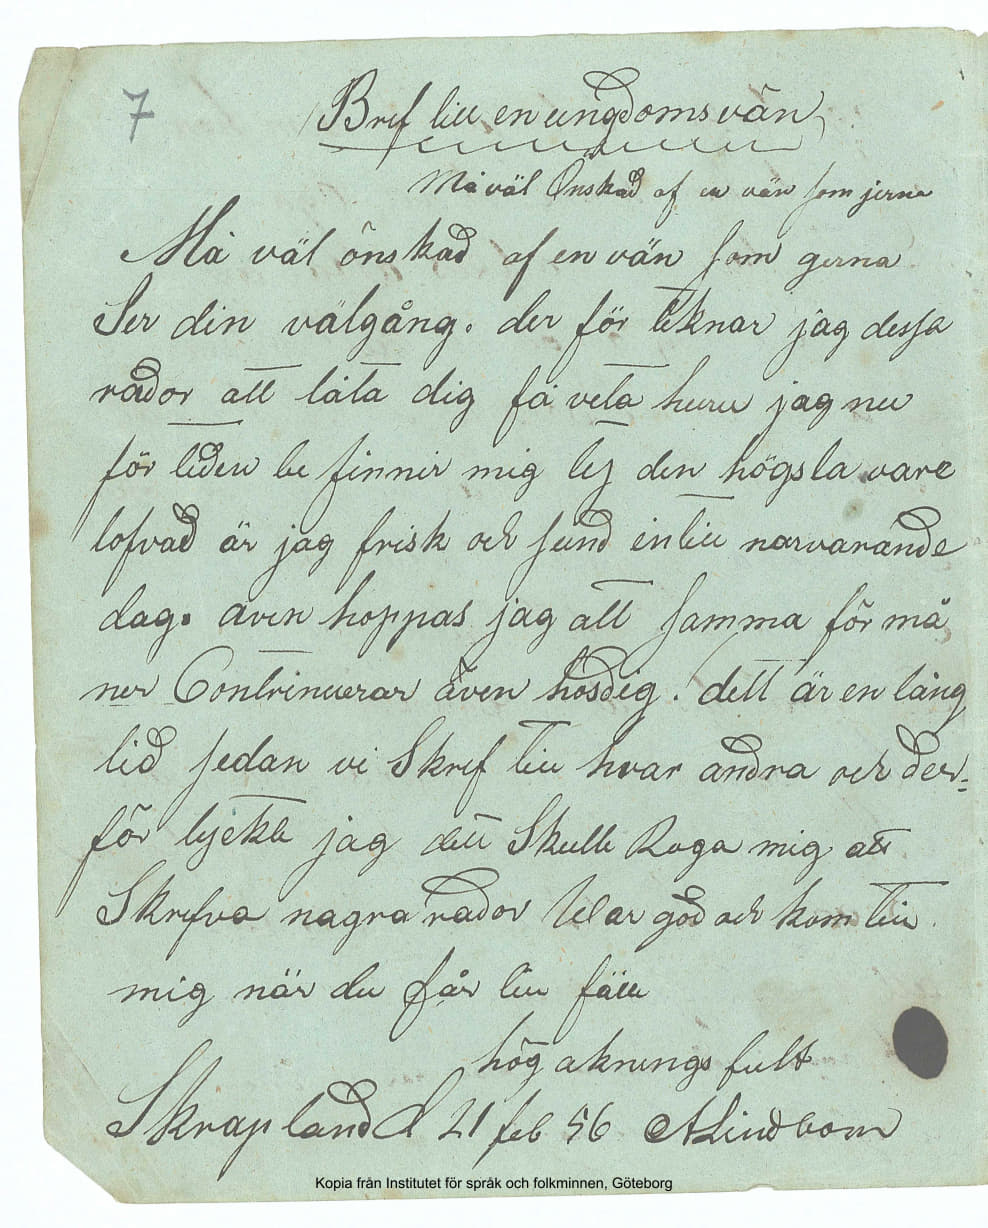 7
Bref till en ungdoms vän
Må väl Önskad af en vän som jerna
Må väl önskad af en vän som gerna
Ser din välgång. der för teknar jag dessa
rador att låta dig få veta huru jag nu
för tiden be finner mig ty den högsta vare
lofvad är jag frisk och sund intill narvarande
dag. även hoppas jag att samma för må
ner Contrinuerar även hosdig. dett är en lång
tid sedan vi Skref till hvar andra och der=
för tyckte jag dett Skulle Roga mig att
Skrefva nagra rador War god och kom till
mig när du får till fälle
hög aknings fullt
Skrapland d 21 feb 56 A Lindbom
Kopia från Institutet för språk och folkminnen, Göteborg